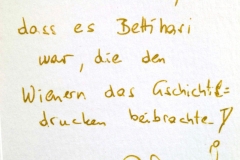 dass es Bettihari
war, die den
Wienern das Gschichtl=
drucken beibrachte!